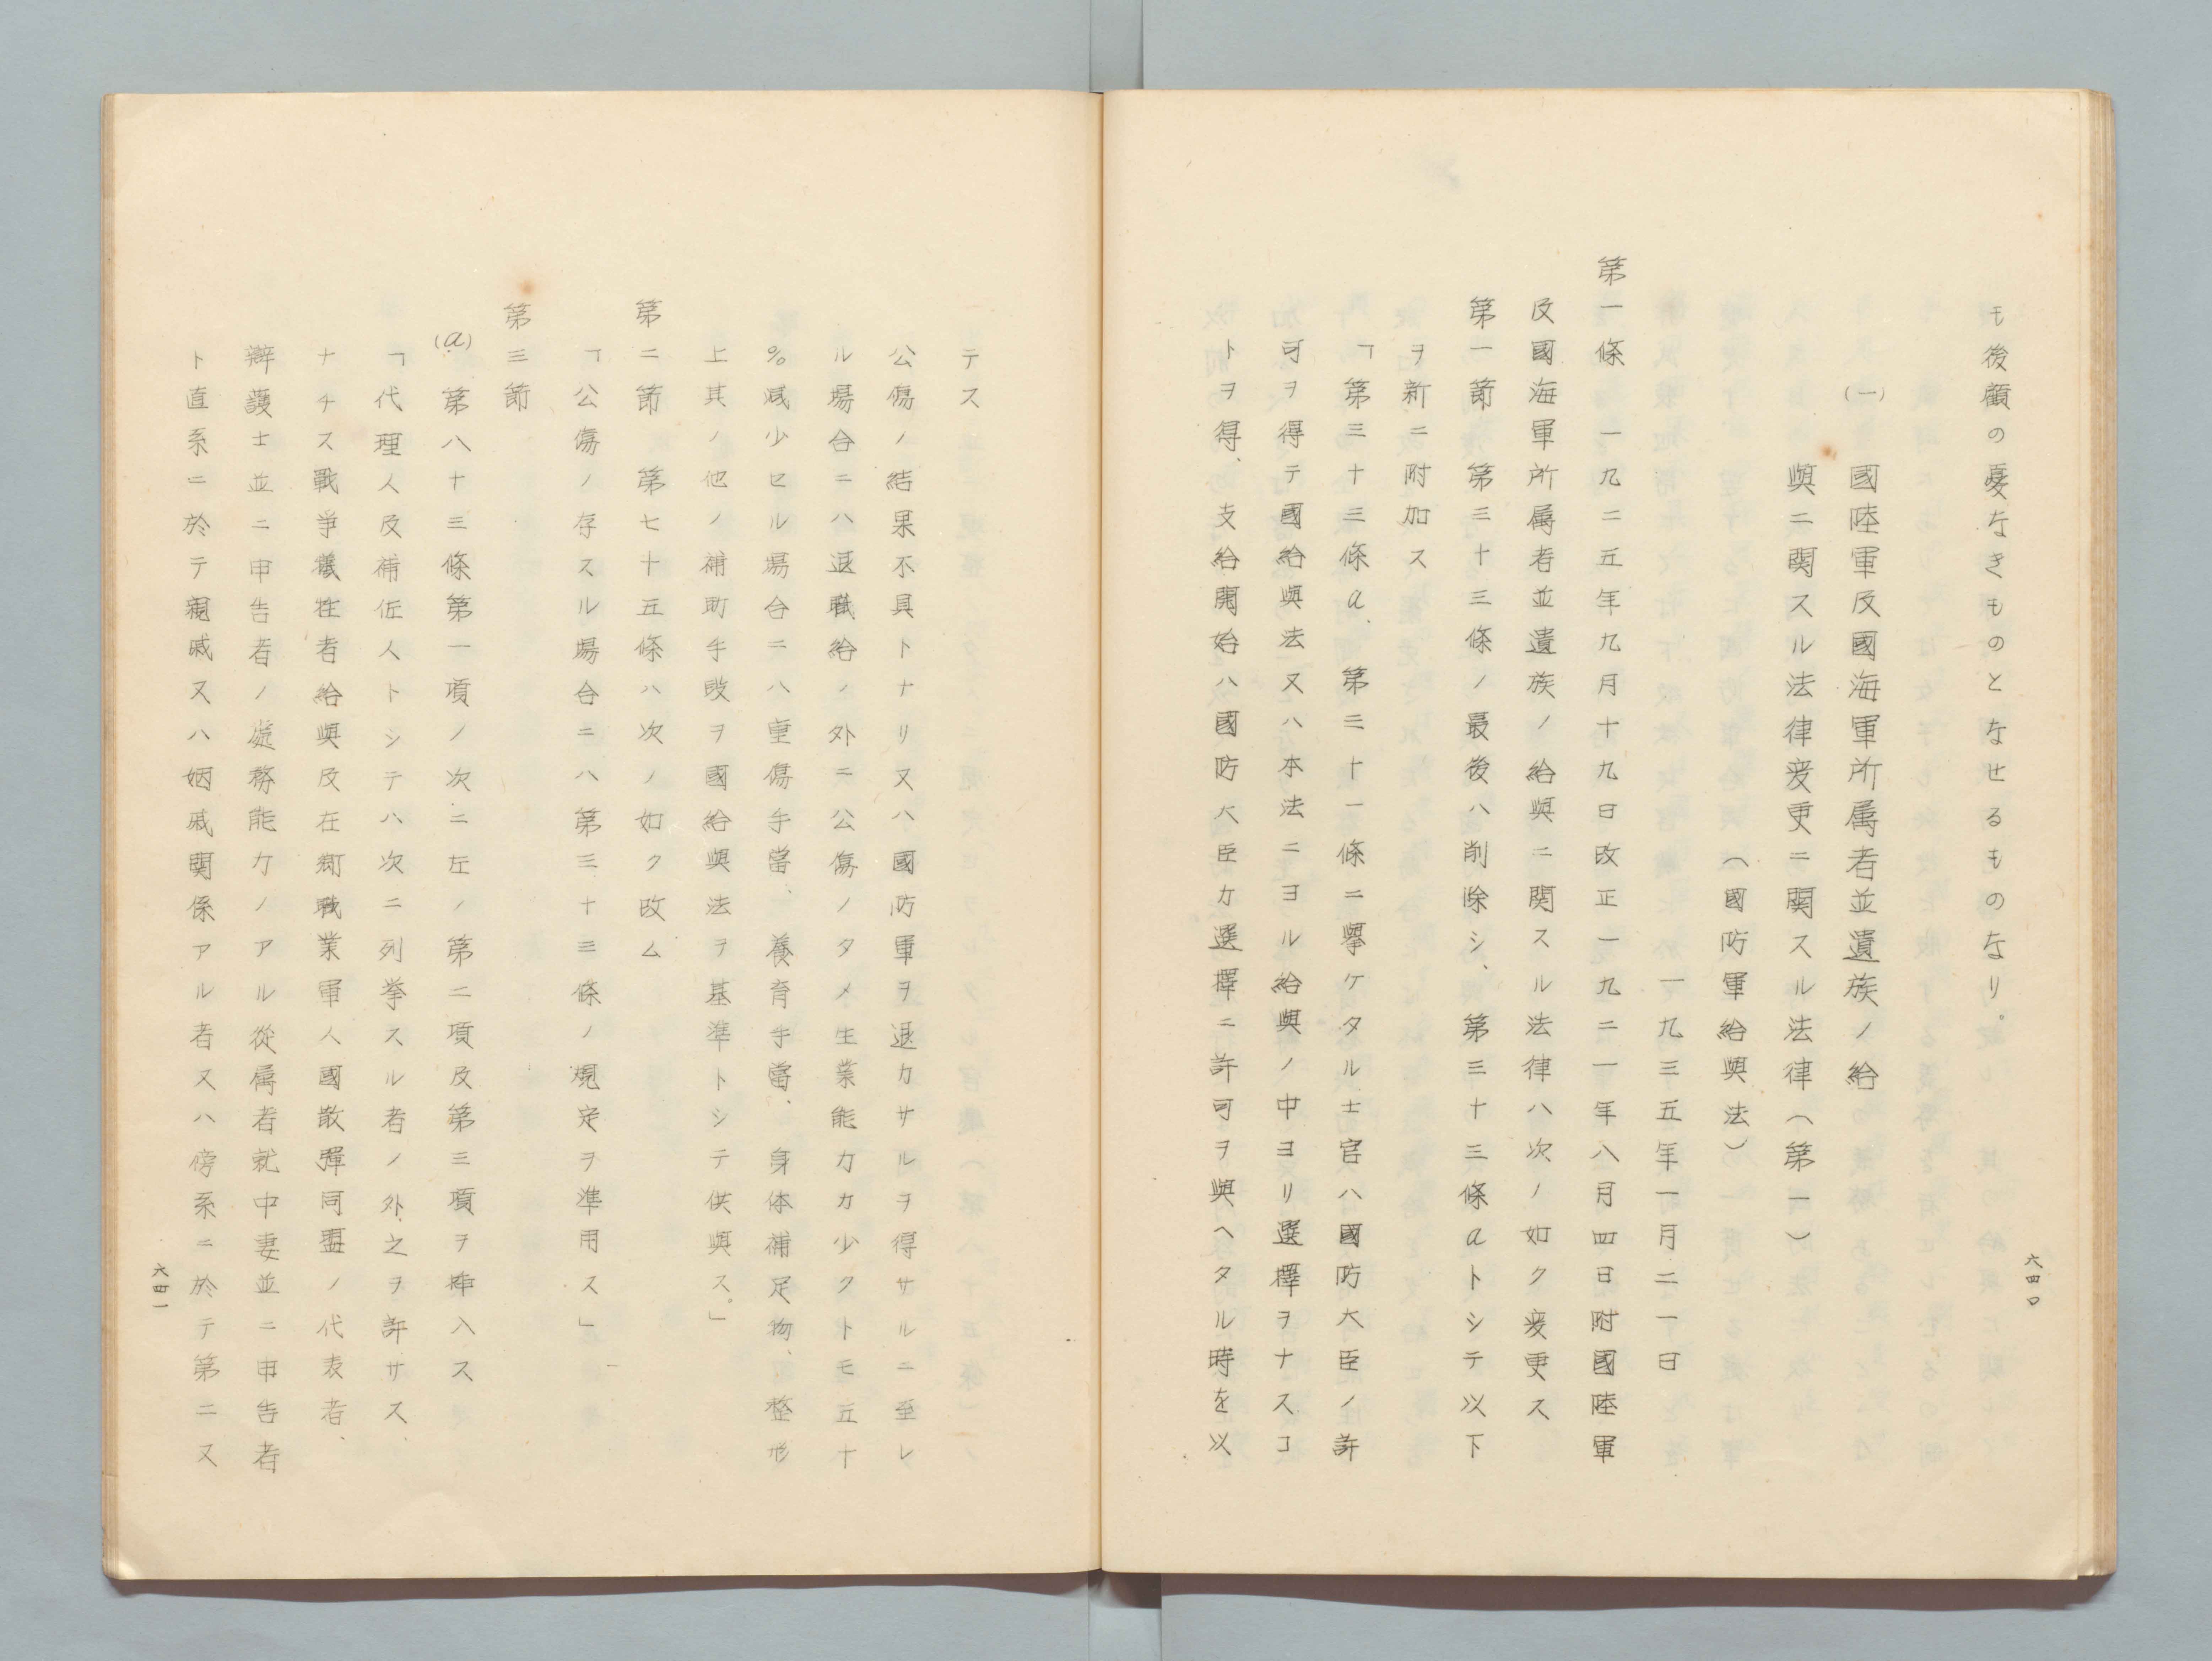 も後顧の憂なきものとなせるものなり。
(一)　國陸軍及國海軍所属者並遺族ノ給
與ニ関スル法律変更ニ関スル法律（第一）
（國防軍給與法）
一九三五年一月二一日
第一條　一九二五年九月十九日改正一九二一年八月四日附國陸軍
及國海軍所属者並遺族ノ給與ニ関スル法律ハ次ノ如ク変更ス
第一節　第三十三條ノ最後ハ削除シ、第三十三條aトシテ以下
ヲ新ニ附加ス
「第三十三條a、第三十一條ニ擧ケタル士官ハ國防大臣ノ許
可ヲ得テ國給與法又ハ本法ニヨル給與ノ中ヨリ選擇ヲナスコ
トヲ得、支給開始ハ國防大臣カ選擇ニ許可ヲ與ヘタル時を以
六四〇
テス
公傷ノ結果不具トナリ又ハ國防軍ヲ退カサルヲ得サルニ至レ
ル場合ニハ退職給ノ外ニ公傷ノタメ生業能力カ少クトモ五十
％減少セル場合ニハ重傷手當、養育手當、身体補足物、整形
上其ノ他ノ補助手段ヲ國給與法ヲ基準トシテ供與ス。」
第二節　第七十五條ハ次ノ如ク改ム
「公傷ノ存スル場合ニハ第三十三條ノ規定ヲ準用ス」
第三節
(a)　第八十三條第一項ノ次ニ左ノ第二項及第三項ヲ挿入ス
「代理人及補佐人トシテハ次ニ列挙スル者ノ外之ヲ許サス、
ナチス戰爭犠牲者給與及在郷職業軍人國散彈同盟ノ代表者、
辯護士並ニ申告者ノ處務能力ノアル從属者就中妻並ニ申告者
ト直系ニ於テ親戚又ハ姻戚関係アル者又ハ傍系ニ於テ第二又
六四一